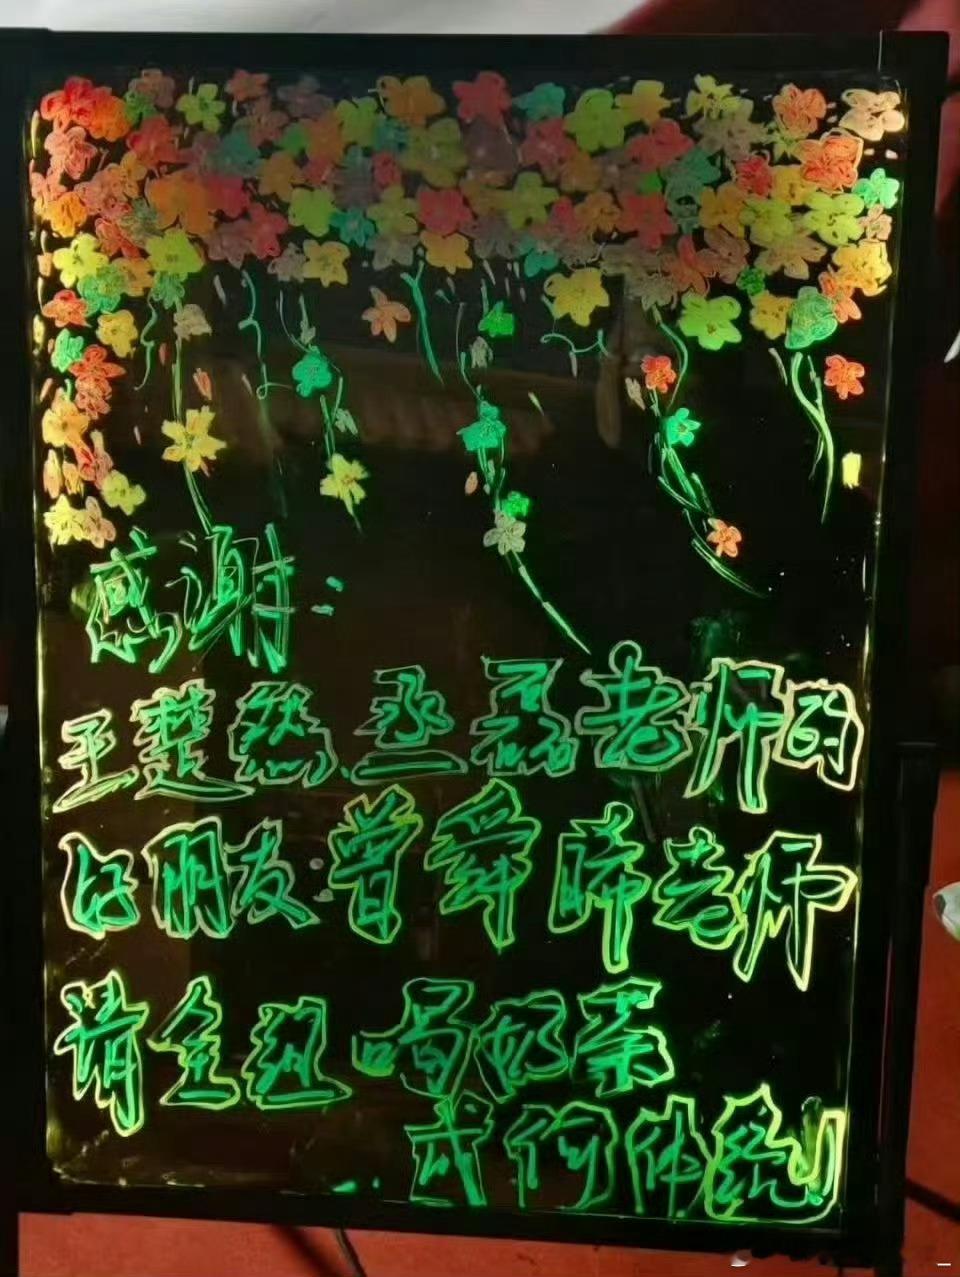 感谢：
王楚然、丞磊老师的
好朋友：曾舜晞老师
请全组喝奶茶